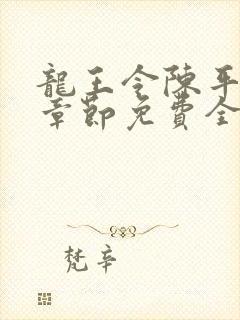 龍王令陳平
章節免費全
梵辛